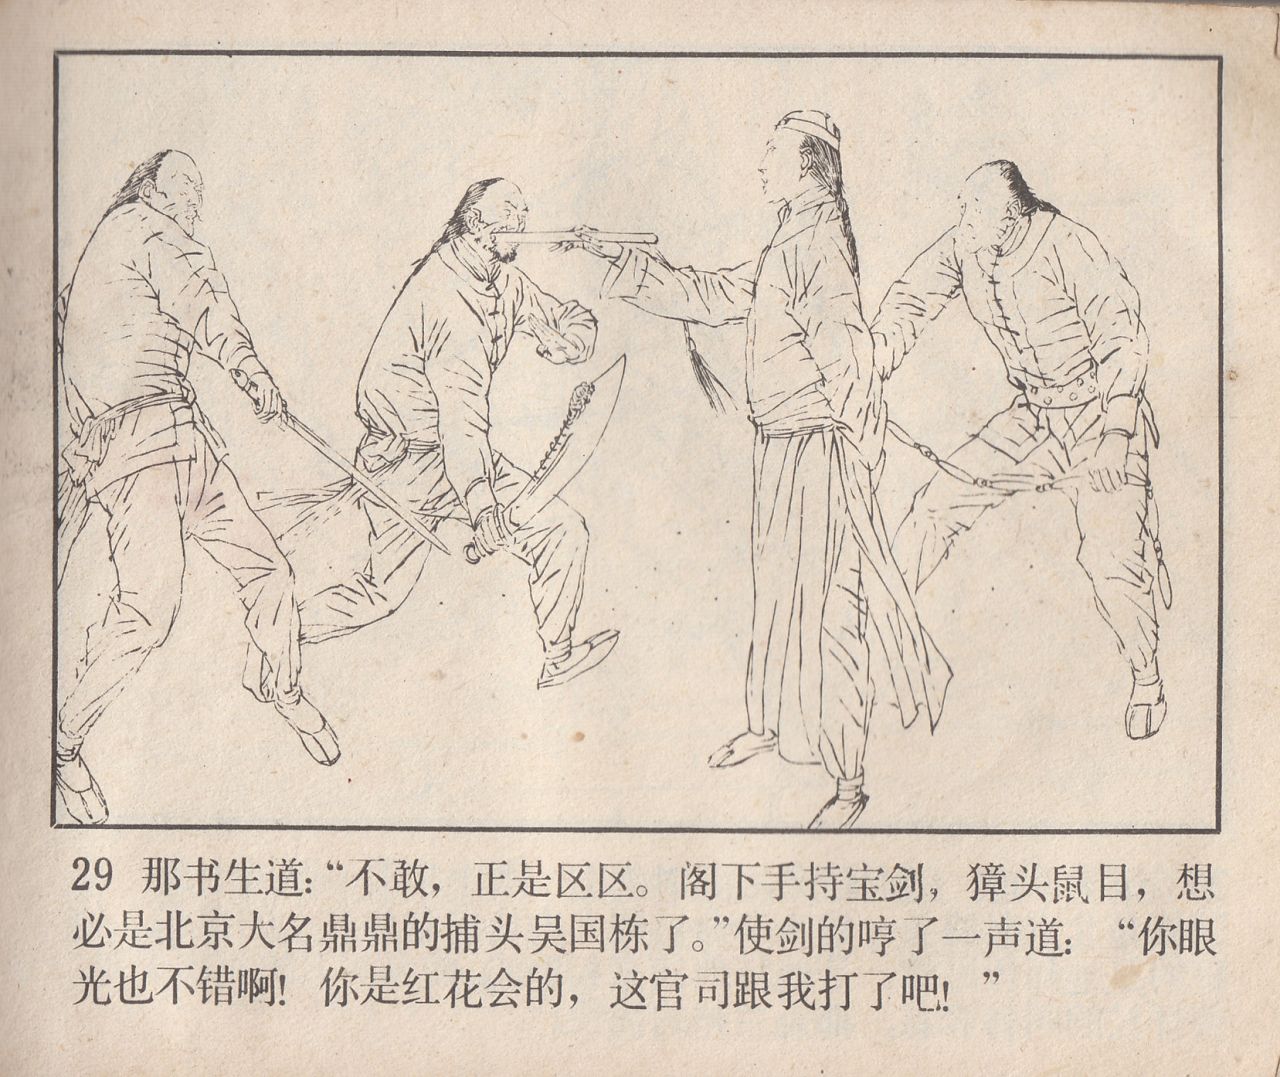 29 那书生道：“不敢，正是区区。阁下手持宝剑，獐头鼠目，想
必是北京大名鼎鼎的捕头吴国栋了。”使剑的哼了一声道：“你眼
光也不错啊！你是红花会的，这官司跟我打了吧！”